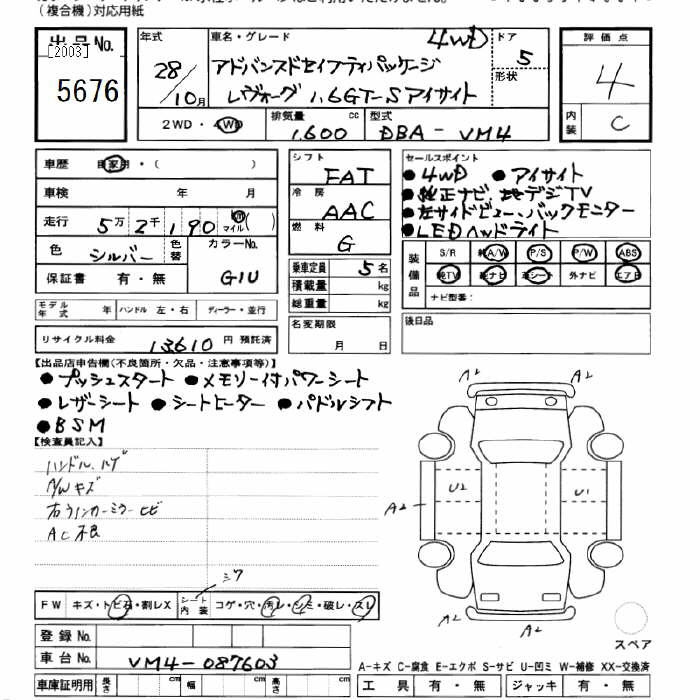 (複合機)対応用紙
出品No.
[2003]
5676
年式
28/10月
車名・グレード
4WD
アドバンスドセイフティパッケージ
レヴォーグ 1.6GT-Sアイサイト
ドア
5
形状
評価点
4
内装
C
2WD・4WD
排気量
1,600
cc
型式
DBA-VM4
車歴
自家用・( )
車検
年 月
走行
5万2千190
マイル( )
色
シルバー
色替
カラーNo.
G1U
保証書
有・無
モデル年式
年
ハンドル
左・右
ディーラー・並行
リサイクル料金
13610
円 預託済
シフト
FAT
冷房
AAC
燃料
G
乗車定員
5名
積載量
kg
総重量
kg
名変期限
月 日
セールスポイント
●4WD ●アイサイト
●純正ナビ、地デジTV
●左サイドビュー、バックモニター
●LEDヘッドライト
装備品
S/R
純A/W
P/S
P/W
ABS
純TV
純ナビ
革シート
外ナビ
エアB
ナビ型番:
後日品
【出品店申告欄(不良箇所・欠品・注意事項等)】
●プッシュスタート ●メモリー付パワーシート
●レザーシート ●シートヒーター ●パドルシフト
●BSM
【検査員記入】
ハンドル、ハゲ
A/Wキズ
右ウィンカーミラーヒビ
AC不良
シワ
FW
キズ・トビ石・割レX
シート内装
コゲ・穴・汚レ・シミ・破レ・スレ
登録No.
車台No.
VM4-087603
車庫証明用
長さ
cm
幅
cm
高さ
cm
A2
A2
U2
U1
A2
A2
A2
スペア
A-キズ C-腐食 E-エクボ S-サビ U-凹ミ W-補修 XX-交換済
工具
有・無
ジャッキ
有・無